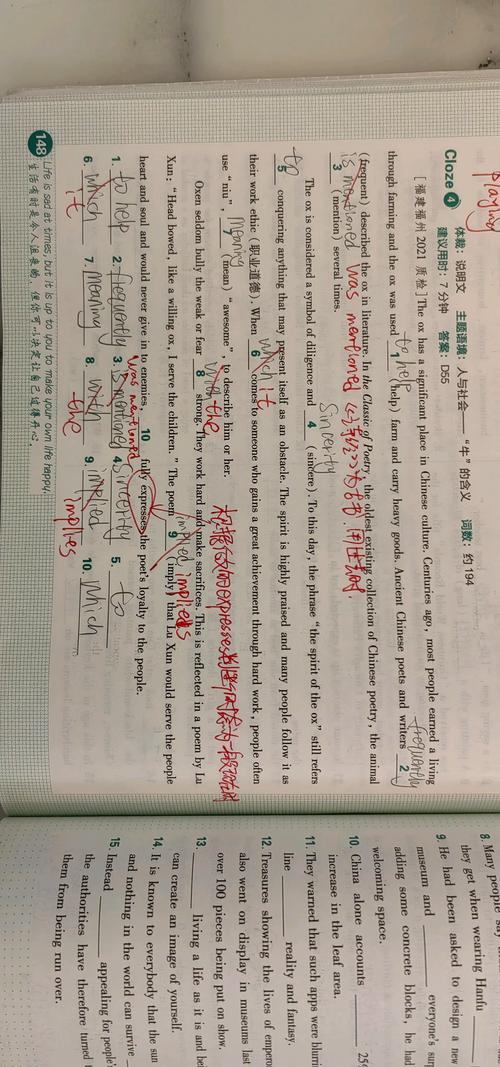 playing
Cloze 4 体裁：说明文 主题语境：人与社会——“牛”的含义 词数：约 194
建议用时：7 分钟 答案：D65
[福建福州 2021 质检] The ox has a significant place in Chinese culture. Centuries ago, most people earned a living
through farming and the ox was used 1 (help) farm and carry heavy goods. Ancient Chinese poets and writers 2
to help
frequently
(frequent) described the ox in literature. In the Classic of Poetry, the oldest existing collection of Chinese poetry, the animal
3 (mention) several times.
is mentioned was mentioned
The ox is considered a symbol of diligence and 4 (sincere). To this day, the phrase “the spirit of the ox” still refers
sincerity
5 conquering anything that may present itself as an obstacle. The spirit is highly praised and many people follow it as
to
their work ethic (职业道德). When 6 comes to someone who gains a great achievement through hard work, people often
which it
use “niu”, 7 (mean) “awesome” to describe him or her.
meaning
Oxen seldom bully the weak or fear 8 strong. They work hard and make sacrifices. This is reflected in a poem by Lu
with the
Xun: “Head bowed, like a willing ox, I serve the children.” The poem 9 (imply) that Lu Xun would serve the people
implied implies
heart and soul and would never give in to enemies, 10 fully expresses the poet's loyalty to the people.
1. to help 2. frequently 3. is mentioned 4. sincerity 5. to
was mentioned
6. which 7. meaning 8. with 9. implied 10. which
it the implies
148 Life is sad at times, but it is up to you to make your own life happy.
生活有时是令人沮丧的，但你可以决定让自己过得开心。
8. Many people say
they get when wearing Hanfu
9. He had been asked to design a new
museum and everyone's
adding some concrete blocks, he had
welcoming space.
10. China alone accounts 25
increase in the leaf area.
11. They warned that such apps were
line reality and fantasy.
12. Treasures showing the lives of
also went on display in museums last
over 100 pieces being put on show.
13. living a life as it is and
can create an image of yourself.
14. It is known to everybody that the sun
and nothing in the world can survive
15. Instead appealing for people's
the authorities have therefore turned
them from being run over.